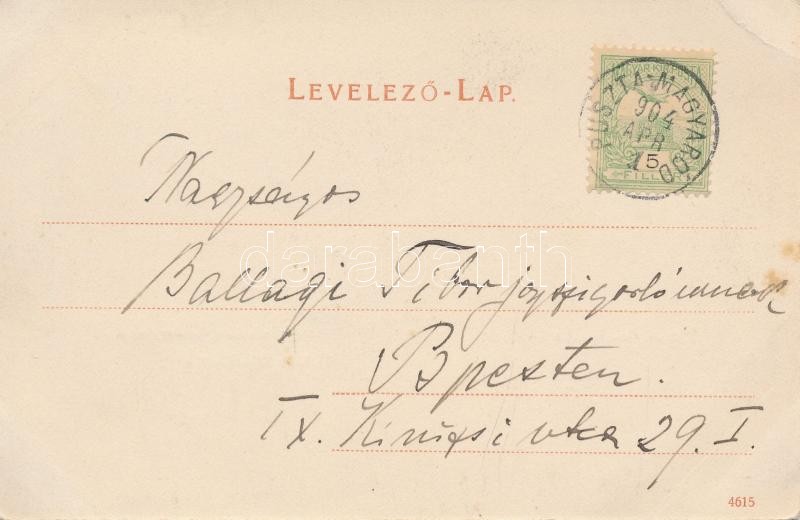 LEVELEZŐ-LAP.
PUSZTA-MAGYARÓD
904
APR
15
FILLÉR
Nagyságos
Ballagi Tibor jogszigorló urnak
Bpesten.
IX. Kinizsi utca 29. I.
darabanth
4615